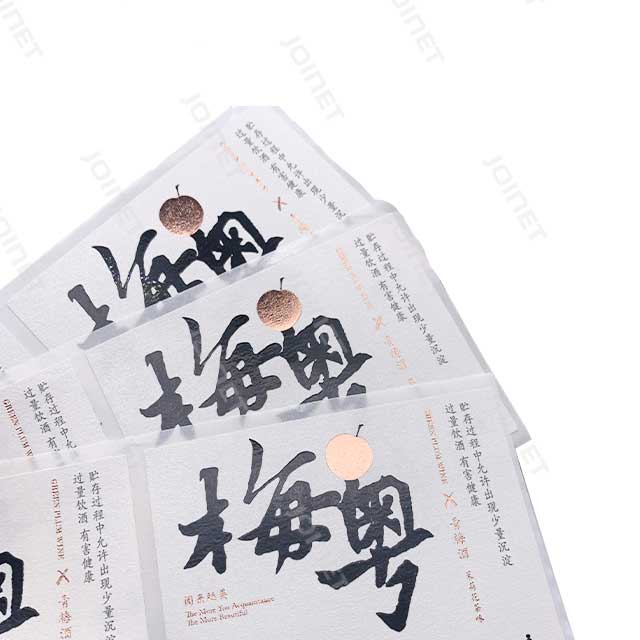 JOINET
JOINET
JOINET
JOINET
JOINET
JOINET
梅粤
贮存过程中允许出现少量沉淀
过量饮酒 有害健康
梅粤
贮存过程中允许出现少量沉淀
过量饮酒 有害健康
GREEN PLUM WINE
青梅酒
贮存过程中允许出现少量沉淀
过量饮酒 有害健康
GREEN PLUM WINE
青梅酒
梅粤
贮存过程中允许出现少量沉淀
过量饮酒 有害健康
GREEN PLUM WINE
青梅酒
茉莉花茶味
The More You Acquaintance
The More Beautiful